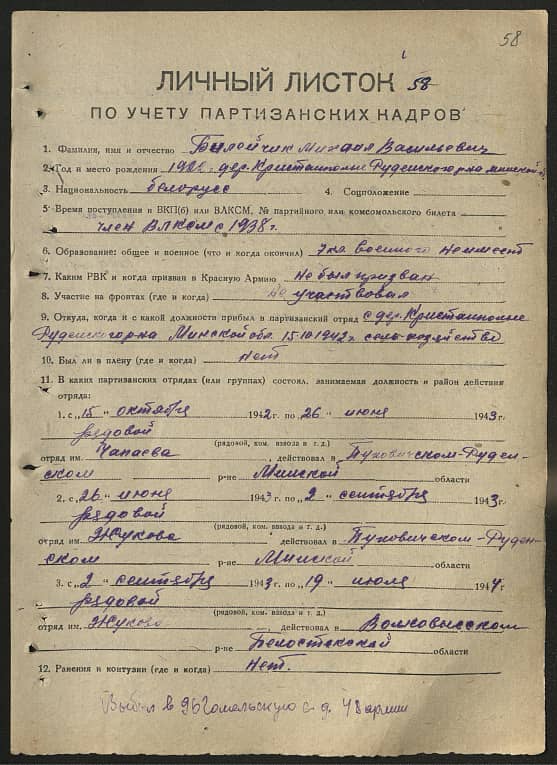 58
ЛИЧНЫЙ ЛИСТОК 58
ПО УЧЕТУ ПАРТИЗАНСКИХ КАДРОВ
1. Фамилия, имя и отчество Михаил Васильевич
2. Год и место рождения дер. Кристамполье Руденского р-на минской
3. Национальность белорусс 4. Соцположение
5 Время поступления в ВКП(б) или ВЛКСМ, № партийного или комсомольского билета
член ВЛКСМ с 1938 г.
6. Образование: общее и военное (что и когда окончил) 7 кл военного не имеет
7. Каким РВК и когда призван в Красную Армию Не был призван
8. Участие на фронтах (где и когда) не участвовал
9. Откуда, когда и с какой должности прибыл в партизанский отряд с дер. Кристамполье
Руденского р-на Минской обл. 15.10.1942 г. сель-хозяйство
10. Был ли в плену (где и когда) Нет
11. В каких партизанских отрядах (или группах) состоял, занимаемая должность и район действия
отряда:
1. с „15" октября 1942 г. по „26 июня 1943 г.
рядовой
(рядовой, ком. взвода и т. д.)
отряд им. Чапаева, действовал в Пуховичском-Руден-
ском р-не Минской области
2. с „26" июня 1943 г. по „2" сентября 1943 г.
рядовой
(рядовой, ком. взвода и т. д.)
отряд им. Жукова действовал в Пуховичском-Руден-
ском р-не Минской области
3. с „2" сентября 1943 г. по „19" июля 1944 г.
рядовой
(рядовой, ком. взвода и т. д.)
отряд им. Жукова, действовал в Волковысском
р-не Белостокской области
12. Ранения и контузии (где и когда) Нет.
Выбыл в 96 Гомельскую с-д. 48 армии